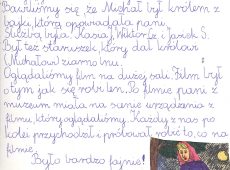 Bawiliśmy się, że Michał był królem z
bajki, którą opowiadała pani.
Służbą była: Kasia, Wiktoria i Jacek S.
Był też staniszek, który dał królowi
(Michałowi) ziarno lnu.
Oglądaliśmy film na dużej sali. Film był
o tym jak się robi len. Po filmie pani z
muzeum miała na scenie urządzania z
filmu, który oglądaliśmy. Każdy z nas po
kolei przychodził i próbował robić to, co na
filmie.
Było bardzo fajnie!